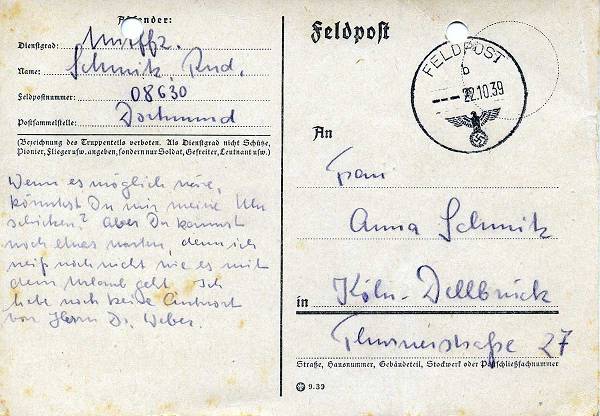 Absender:
Dienstgrad: Unteroffz.
Name: Schmitz, Rud.
Feldpostnummer: 08630
Postsammelstelle: Dortmund
(Bezeichnung des Truppenteils verboten. Als Dienstgrad nicht Schütze,
Pionier, Flieger usw. angeben, sondern nur Soldat, Gefreiter, Leutnant usw.)
Wenn es möglich wäre,
könntest Du mir meine Uhr
schicken? Aber Du kannst
noch etwas warten, denn ich
weiß noch nicht wie es mit
dem Urlaub geht. Ich
habe noch keine Antwort
von Herrn Dr. Weber.
Feldpost
FELDPOST
b
22.10.39
An
Frau
Anna Schmitz
in Köln-Dellbrück
Thurnerstraße 27
Straße, Hausnummer, Gebäudeteil, Stockwerk oder Postschließfachnummer
9.39